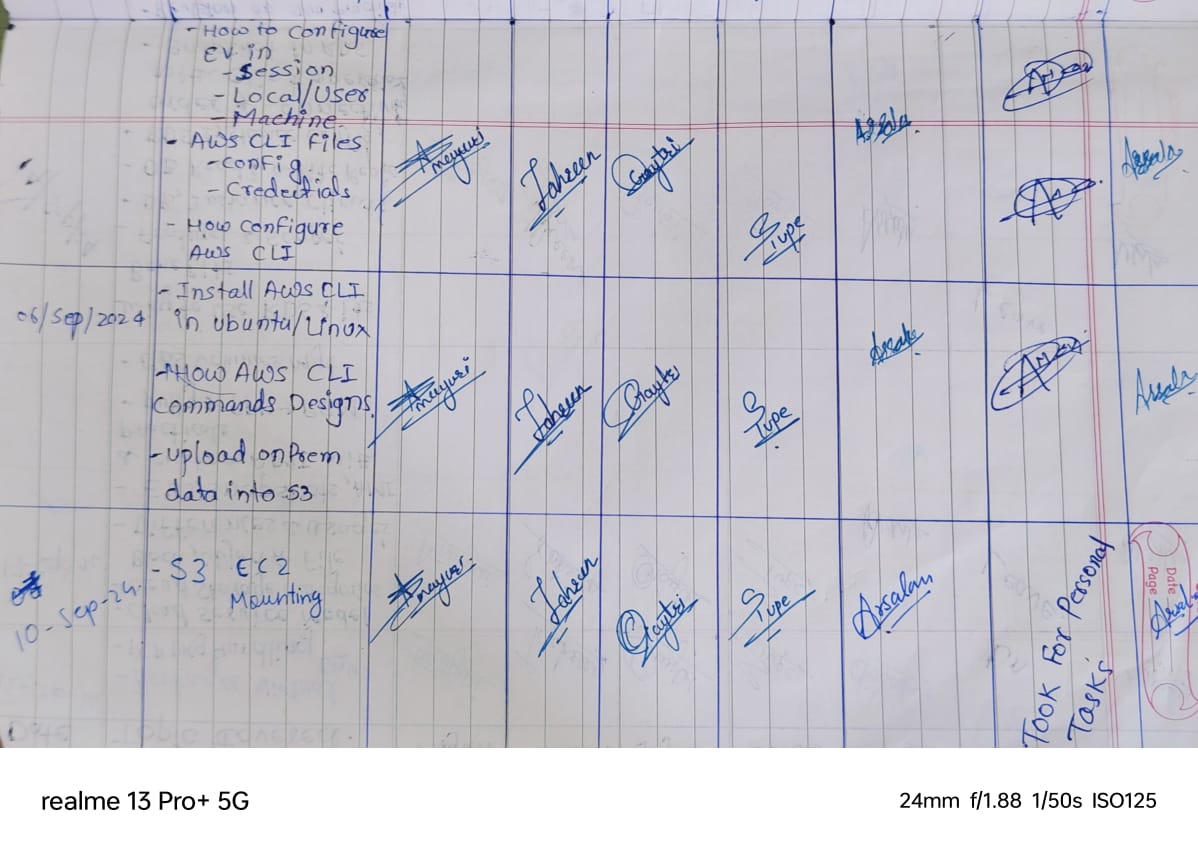 - How to configure
EV in
- Session
- Local/User
- Machine
- AWS CLI Files
- config
- Credentials
- How configure
AWS CLI
Tahseen
Gaytri
Tupe
06/Sep/2024
- Install AWS CLI
in Ubuntu/Linux
- HOW AWS CLI
Commands Designs
- upload onPrem
data into S3
Tahseen
Gaytri
Tupe
10-Sep-24.
- S3 EC2
Mounting
Tahseen
Gaytri
Tupe
Arsalan
TOOK For Personal
Tasks
Date
Page
realme 13 Pro+ 5G
24mm f/1.88 1/50s ISO125